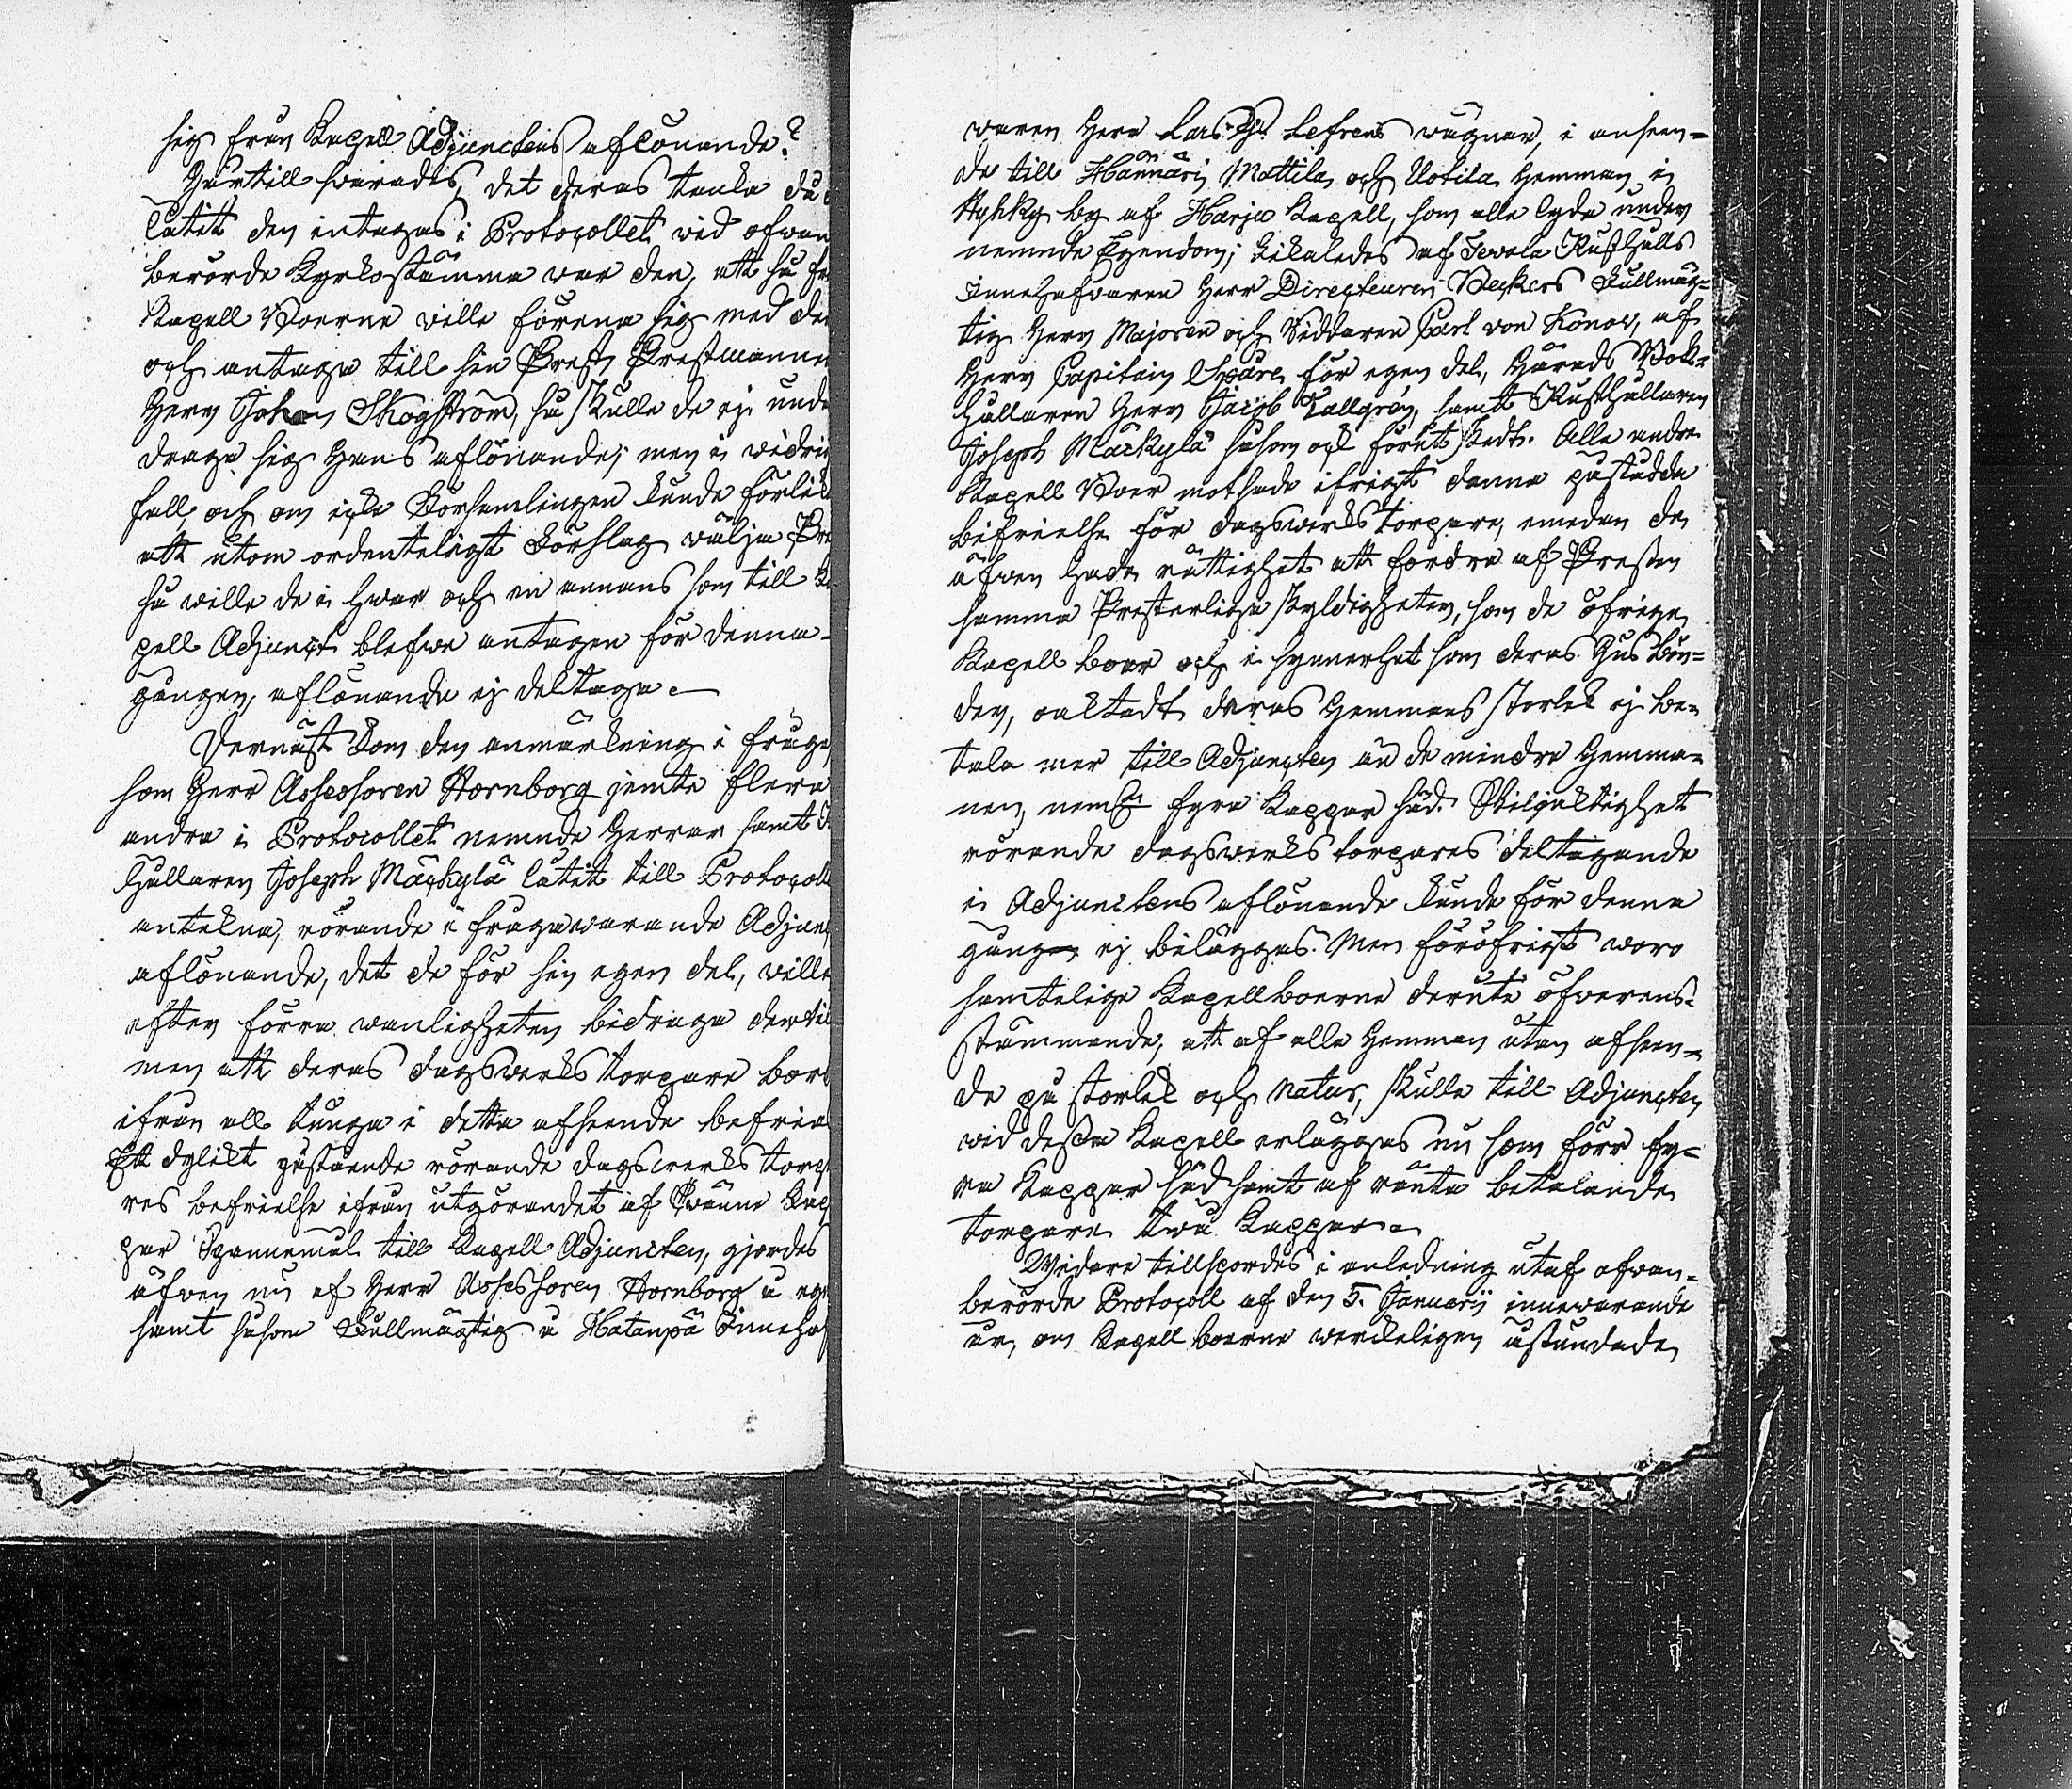 sig från Kapell Adjunctens aflönande?
Härtill swarades, det deras tanka då
låtit den intagas i Protocollet wid ofwan
berörde Kyrkostämma war den, att så fr
Kapell Boerne wille förena sig med de
och antaga till sin Prest Prestmannen
Herr Johan Skogström, så skulle de ej unda
draga sig Hans aflönande; men i widri
fall, och om icke Församlingen kunde förlik
att utom ordenteligt Förslag wälja Pre
så wille de i hwar och en annans som till Ka
pell Adjunct blefwe antagen för denna
gången, aflönande ej deltaga.
Dernäst kom den anmärkning i fråga,
som Herr Assessoren Hornborg jemte flera
andra i Protocollet nemnde Herrar samt
hållaren Joseph Mäckylä låtit till Protocoll
antekna, rörande i frågawarande Adjunc
aflönande, det de för sin egen del, wille
efter förra wanligheten bidraga dertil
men att deras dagswerks torpare bor
ifrån all tunga i detta afseende befria
Ett dylikt påstående rörande dagswerks torpa
res befrielse ifrån utgörandet af Twänne Kap
par Spannemål till Kapell Adjuncten, gjordes
äfwen nu af Herr Assessoren Hornborg å egn
samt såsom Fullmägtig å Hatanpä Innehaf
waren Herr Lars Gs. Lefrens wägnar, i anseen=
de till Hännäri, Mattila och Uotila Hemman i
Hyhky by af Harju Kapell, som alla lyda under
nemnde Egendom; likaledes af Jewala Rusthålls
Innehafwaren Herr Directeuren Beckers Fullmäg=
tig Herr Majoren och Riddaren Carl von Konow, af
Herr Capitain Spåre för egen del, Härads Bok=
hållaren Herr Jacob Tallgrén, samt Rusthållaren
Joseph Mäckylä såsom ock förut skedt. Alla andra
Kapell Boer motsade ifrigt denna påstådda
befrielse för dagswerks torpare, emedan de
äfwen hade rättighet att fordra af Presten
samma Presterliga skyldigheter, som de öfriga
Kapell boar och i synnerhet som deras Husbön=
der, oaktadt deras Hemmans storlek ej be=
tala mer till Adjuncten än de mindre Hemma=
nen, neml. fyra Kappar säd. Skiljaktighet
rörande dagswerks torpares deltagande
i Adjunctens aflönande kunde för denna
gången ej biläggas. Men föröfrigt woro
samtelige Kapellboerne deruti öfwerens=
stämmande, att af alla Hemman utan afseen=
de på storlek och natur, skulle till Adjuncten
wid dessa Kapell erläggas nu som förr fy=
ra Kappar säd samt af ränta betalande
torpare twå Kappar.
Widare tillspordes i anledning utaf ofwan=
berörde Protocoll af den 5. Januarii innewarande
år, om Kapell boerne werkeligen åstundade